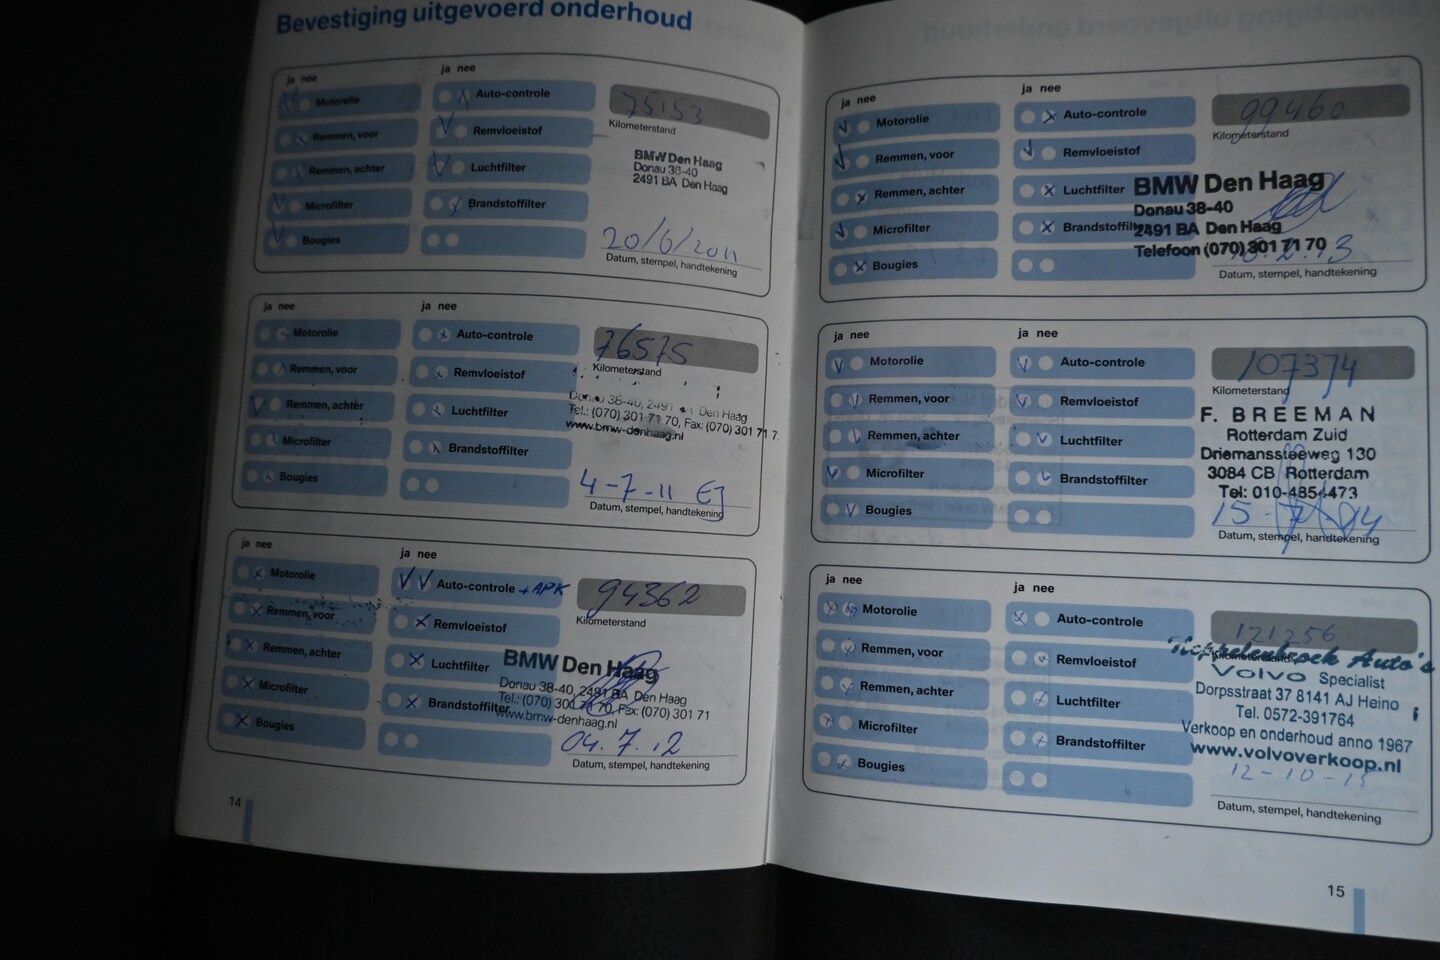 Bevestiging uitgevoerd onderhoud
ja nee
Motorolie
Remmen, voor
Remmen, achter
Microfilter
Bougies
ja nee
Auto-controle
Remvloeistof
Luchtfilter
Brandstoffilter
75153
Kilometerstand
BMW Den Haag
Donau 38-40
2491 BA Den Haag
20/6/2011
Datum, stempel, handtekening
ja nee
Motorolie
Remmen, voor
Remmen, achter
Microfilter
Bougies
ja nee
Auto-controle
Remvloeistof
Luchtfilter
Brandstoffilter
76575
Kilometerstand
Donau 38-40, 2491 Den Haag
Tel.: (070) 301 71 70, Fax: (070) 301 71 7
www.bmw-denhaag.nl
4-7-11
Datum, stempel, handtekening
ja nee
Motorolie
Remmen, voor
Remmen, achter
Microfilter
Bougies
ja nee
Auto-controle + APK
Remvloeistof
Luchtfilter
Brandstoffilter
94362
Kilometerstand
BMW Den Haag
Donau 38-40, 2491 BA Den Haag
Tel.: (070) 301 71 70, Fax: (070) 301 71
www.bmw-denhaag.nl
04.7.12
Datum, stempel, handtekening
14
ja nee
Motorolie
Remmen, voor
Remmen, achter
Microfilter
Bougies
ja nee
Auto-controle
Remvloeistof
Luchtfilter
Brandstoffilter
99460
Kilometerstand
BMW Den Haag
Donau 38-40
2491 BA Den Haag
Telefoon (070) 301 71 70
Datum, stempel, handtekening
ja nee
Motorolie
Remmen, voor
Remmen, achter
Microfilter
Bougies
ja nee
Auto-controle
Remvloeistof
Luchtfilter
Brandstoffilter
107374
Kilometerstand
F. BREEMAN
Rotterdam Zuid
Driemanssteeweg 130
3084 CB Rotterdam
Tel: 010-4854473
15-7-14
Datum, stempel, handtekening
ja nee
Motorolie
Remmen, voor
Remmen, achter
Microfilter
Bougies
ja nee
Auto-controle
Remvloeistof
Luchtfilter
Brandstoffilter
121256
Kilometerstand
Auto's
Volvo Specialist
Dorpsstraat 37 8141 AJ Heino
Tel. 0572-391764
Verkoop en onderhoud anno 1967
www.volvoverkoop.nl
12-10-15
Datum, stempel, handtekening
15